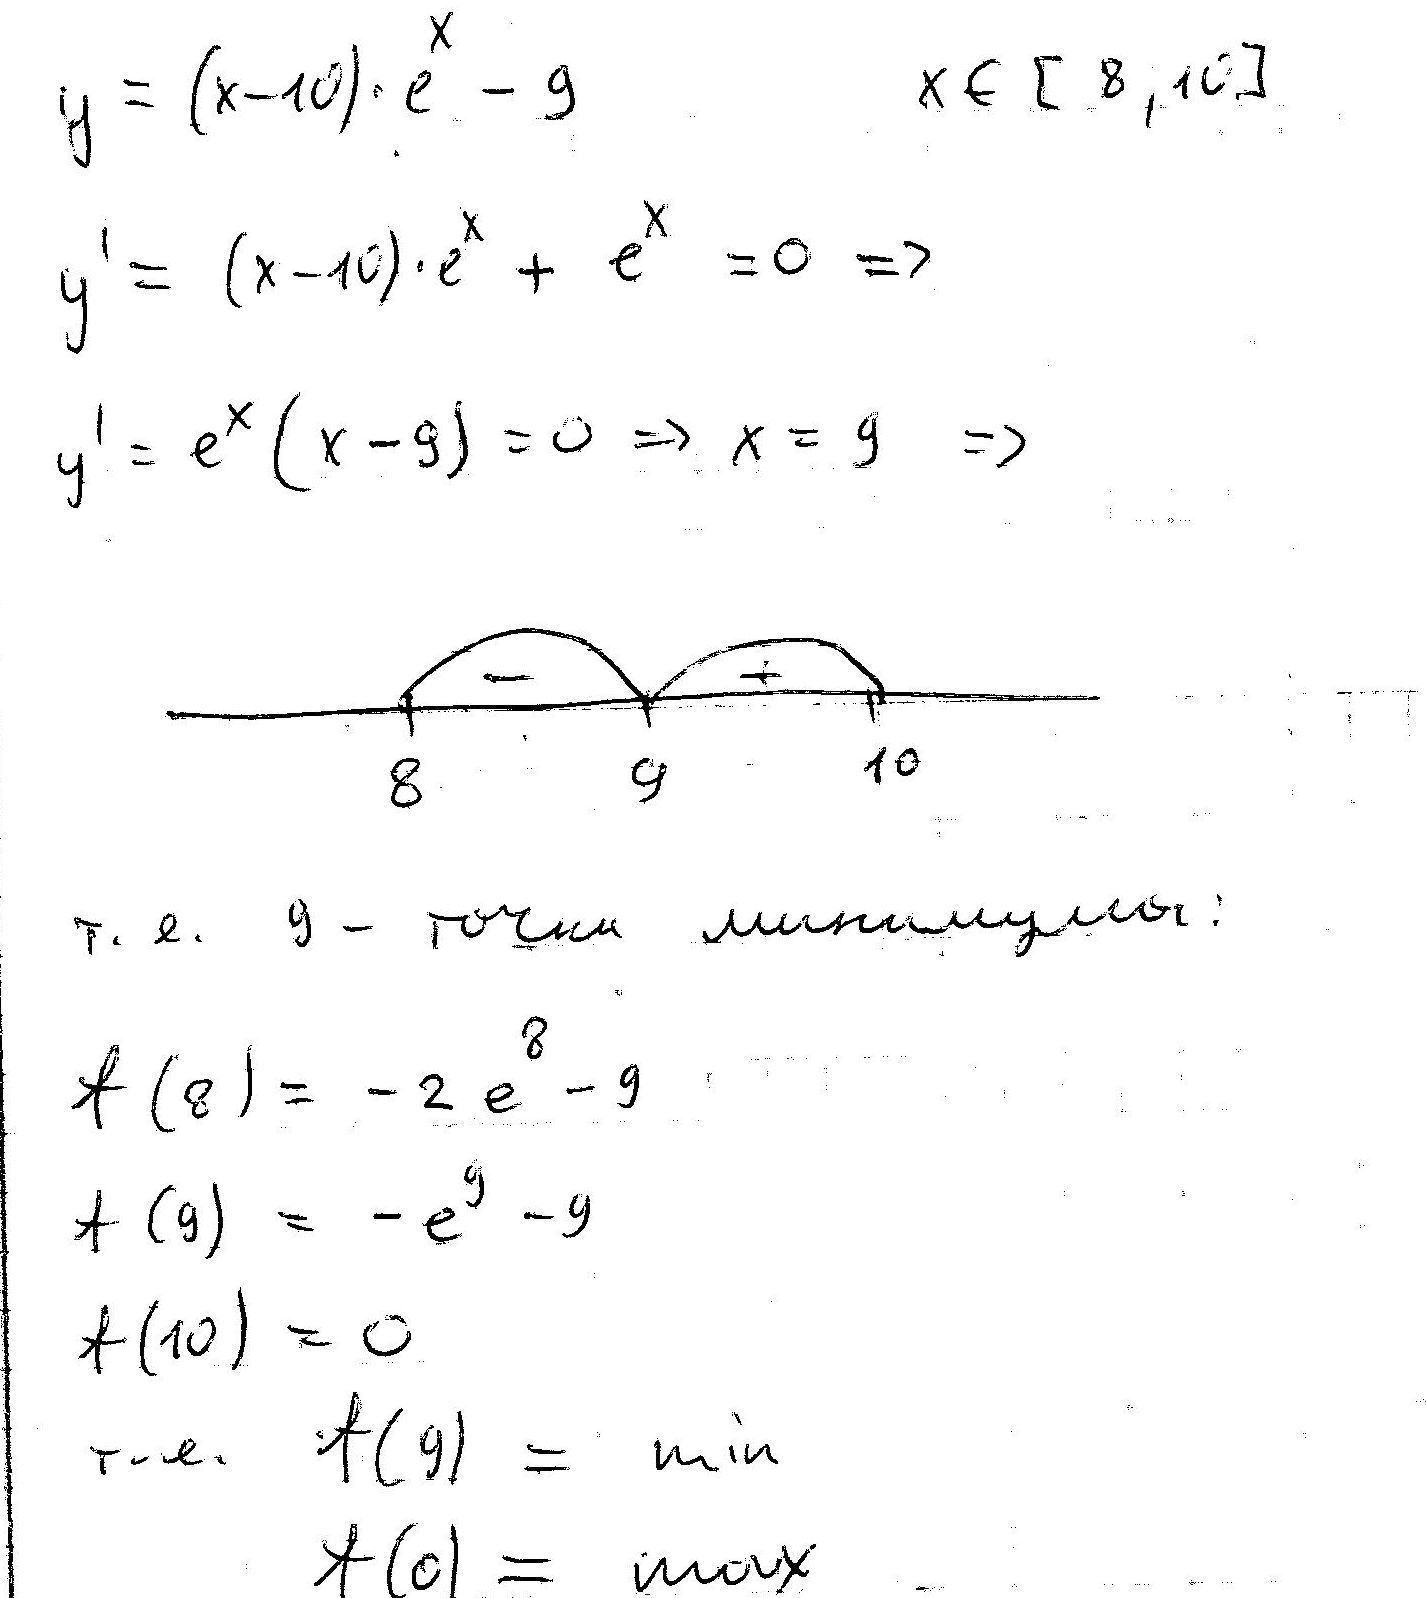 y = (x-10)·eˣ - 9 x ∈ [8,10]
y' = (x-10)·eˣ + eˣ = 0 =>
y' = eˣ(x-9) = 0 => x = 9 =>
- +
8 9 10
т.е. 9 - точка минимума:
f(8) = -2e⁸ - 9
f(9) = -e⁹ - 9
f(10) = 0
т.е. f(9) = min
f(0) = max